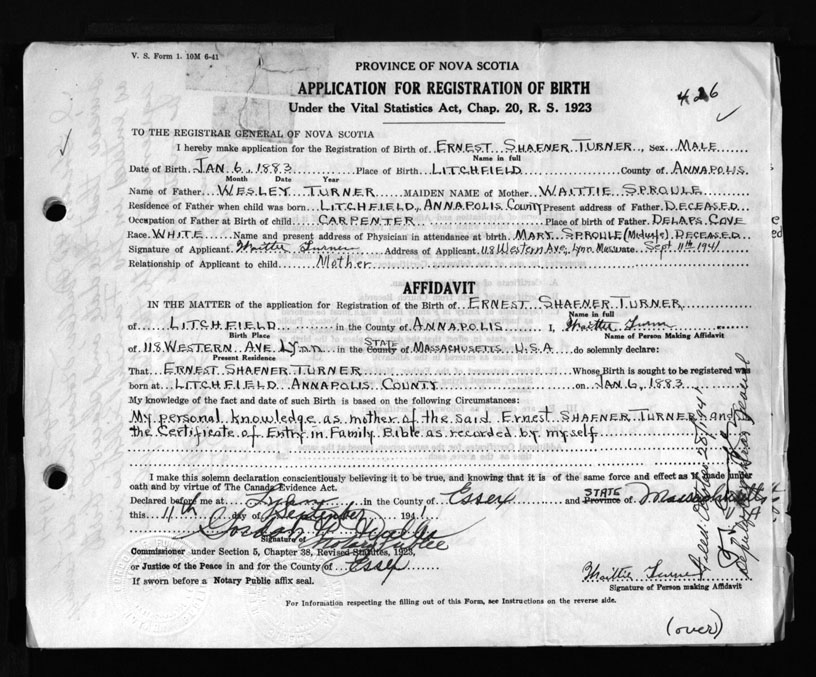 V. S. Form 1. 10M 6-41
PROVINCE OF NOVA SCOTIA
APPLICATION FOR REGISTRATION OF BIRTH
Under the Vital Statistics Act, Chap. 20, R. S. 1923
426
TO THE REGISTRAR GENERAL OF NOVA SCOTIA
I hereby make application for the Registration of Birth of ERNEST SHAFNER TURNER, Sex MALE
Name in full
Date of Birth JAN. 6, 1883 Place of Birth LITCHFIELD County of ANNAPOLIS
Month Date Year
Name of Father WESLEY TURNER MAIDEN NAME of Mother WAITTIE SPROULE
Residence of Father when child was born LITCHFIELD, ANNAPOLIS County Present address of Father DECEASED
Occupation of Father at Birth of child CARPENTER Place of birth of Father DELAPS COVE
Race WHITE Name and present address of Physician in attendance at birth MARY SPROULE (Midwife) DECEASED
Signature of Applicant Waittie Turner Address of Applicant 118 Western Ave, Lynn Mass Date Sept 11th 1941
Relationship of Applicant to child Mother
AFFIDAVIT
IN THE MATTER of the application for Registration of the Birth of ERNEST SHAFNER TURNER
Name in full
of LITCHFIELD in the County of ANNAPOLIS I, Waittie Turner
Birth Place Name of Person Making Affidavit
of 118 WESTERN AVE LYNN in the County STATE of MASSACHUSETTS U.S.A do solemnly declare:
Present Residence
That ERNEST SHAFNER TURNER Whose Birth is sought to be registered was
born at LITCHFIELD ANNAPOLIS COUNTY on JAN 6, 1883
My knowledge of the fact and date of such Birth is based on the following Circumstances:
My personal knowledge as mother of the said Ernest SHAFNER TURNER and
the Certificate of Entry in Family Bible as recorded by myself
I make this solemn declaration conscientiously believing it to be true, and knowing that it is of the same force and effect as if made under
oath and by virtue of The Canada Evidence Act.
Declared before me at Lynn in the County of Essex and STATE Province of Massachusetts
this 11th day of September 1941
Signature of Notary Public
Commissioner under Section 5, Chapter 38, Revised Statutes, 1923,
or Justice of the Peace in and for the County of Essex
If sworn before a Notary Public affix seal.
Waittie Turner
Signature of Person making Affidavit
For Information respecting the filling out of this Form, see Instructions on the reverse side.
(over)